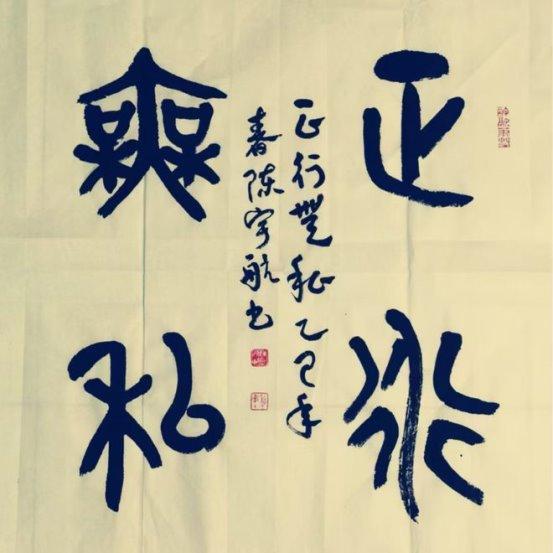 正行
無私
正行無私乙巳年
春陈宇航书